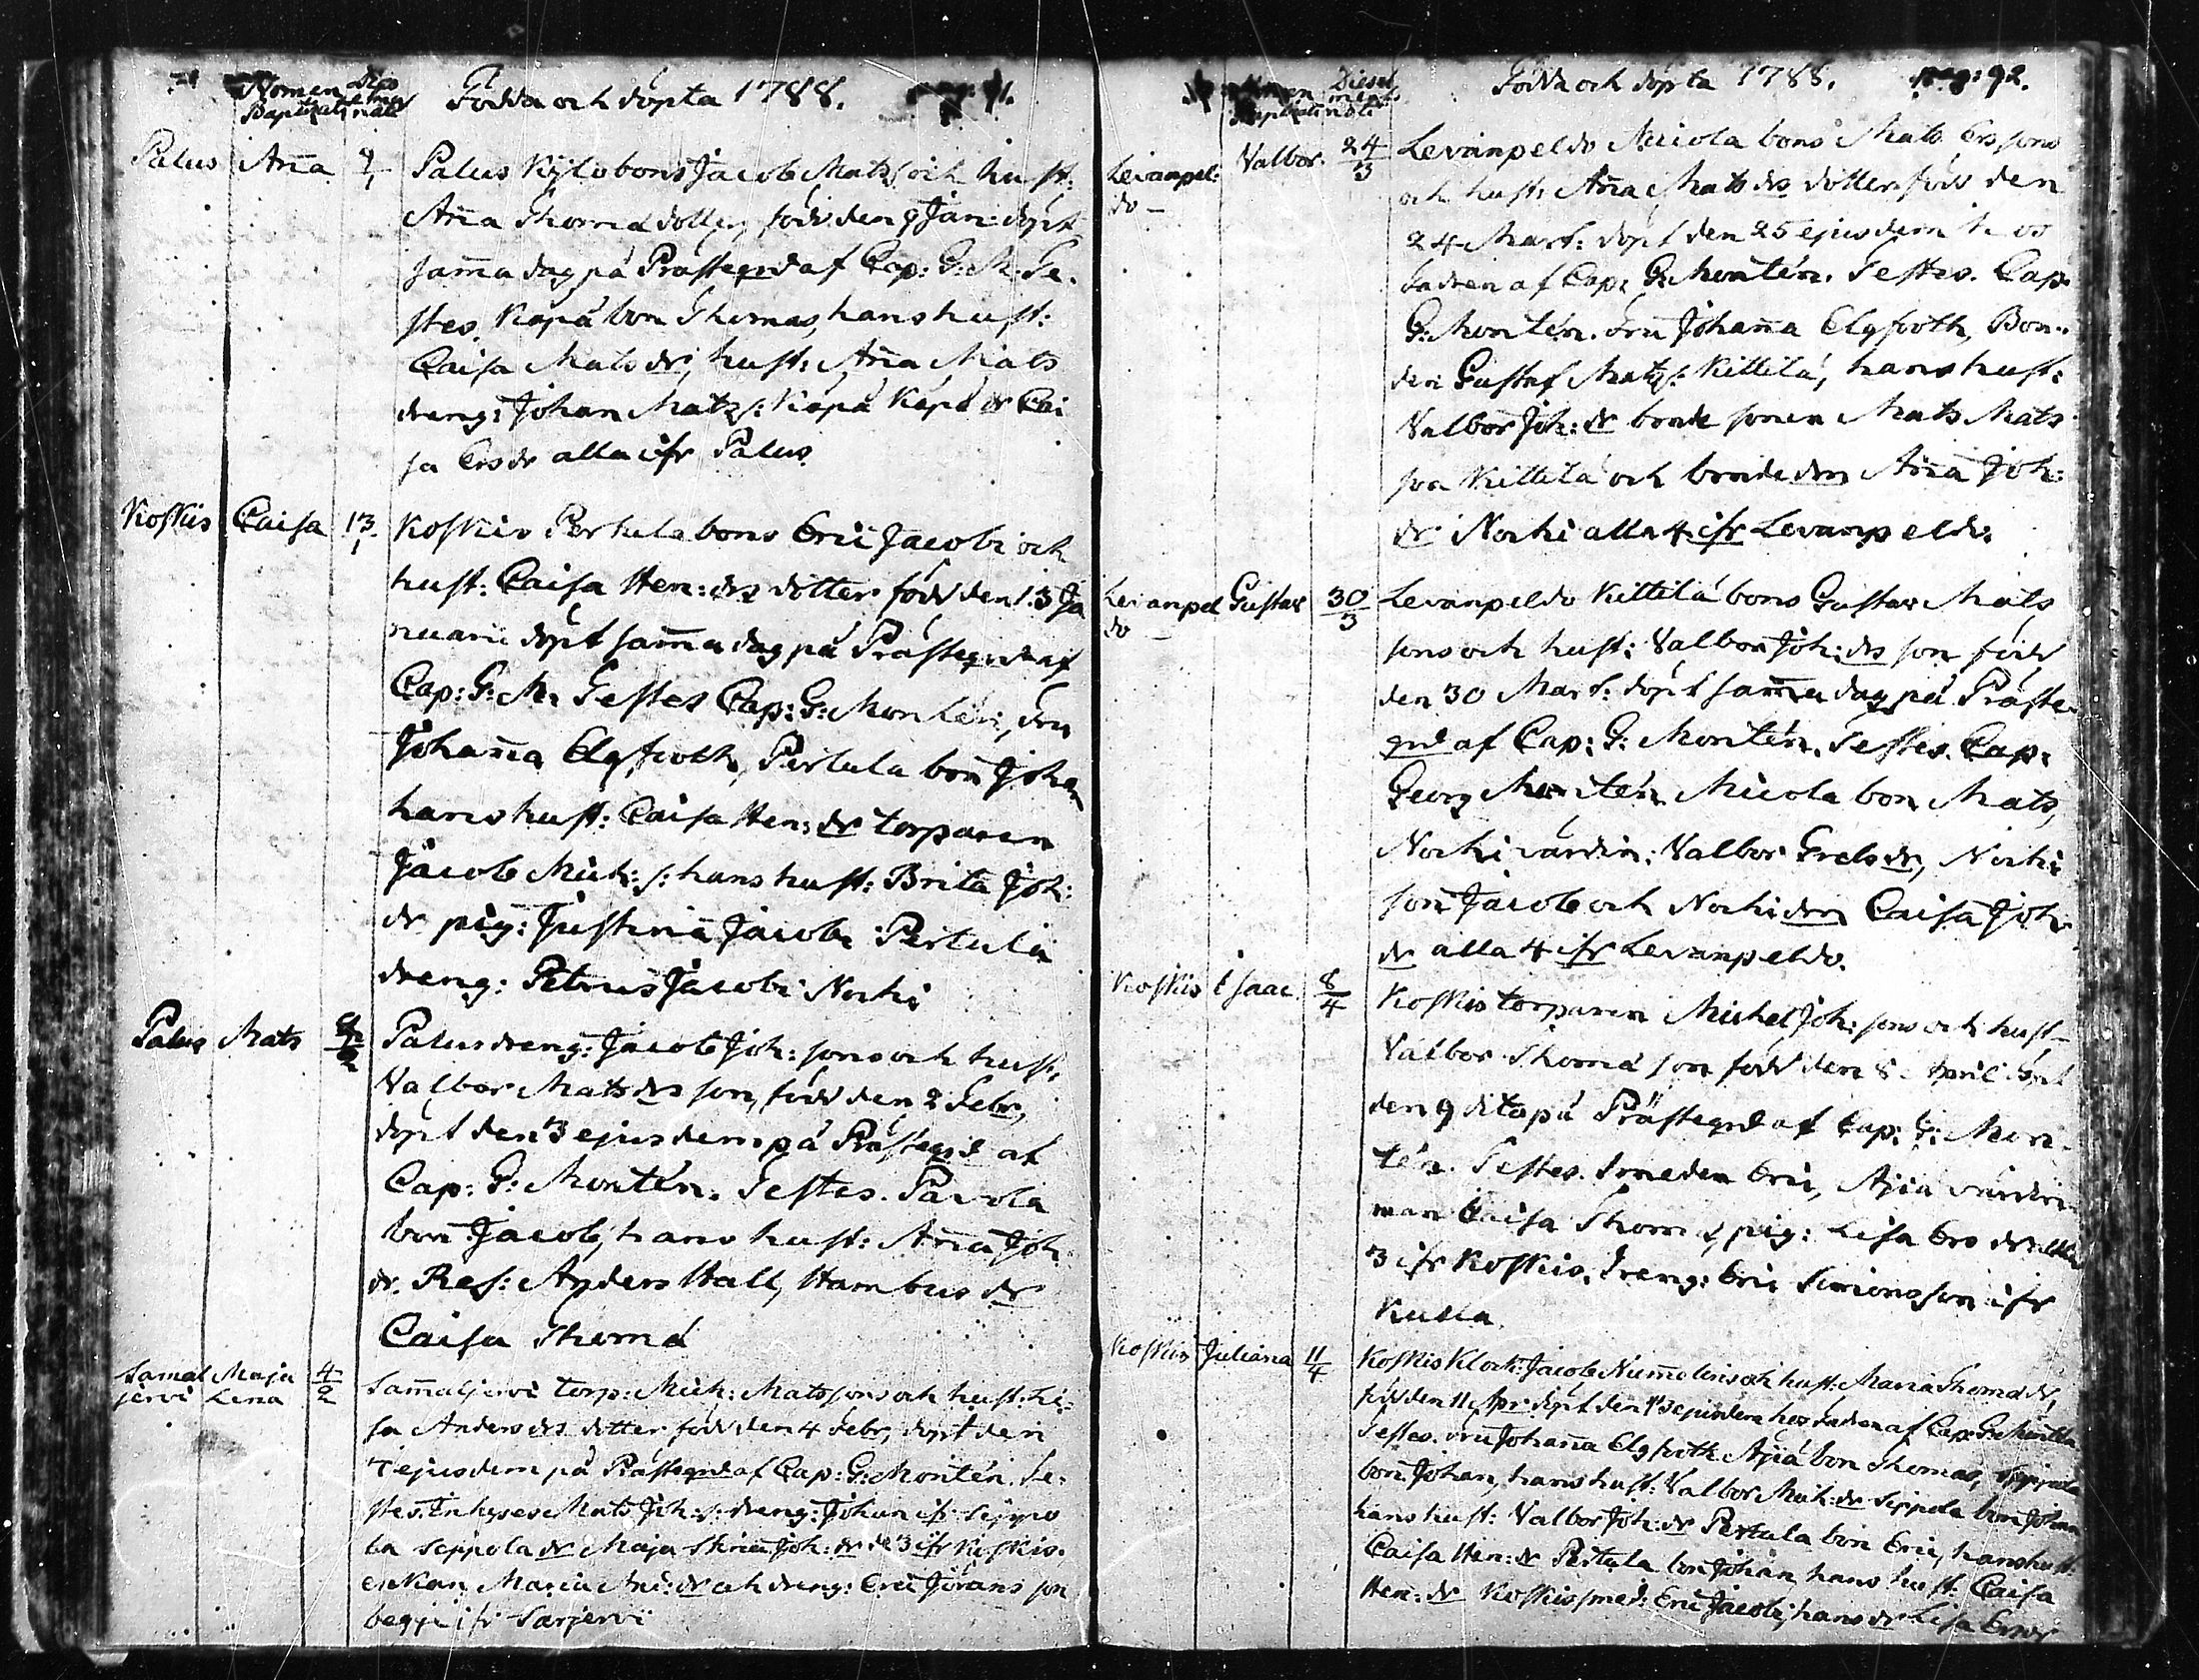 Nomen Dies
Baptizati nati
Föda och döpta 1788.
Palus Anna 9/1
Palus Kylä bons Jacob Mats s: och hust:
Anna Thomæ dotter, född den 9 Jan: döpt
samma dag på Prästegrd af Cap: G: M: Te-
stes. Käpä bon Thomas, hans hust:
Caisa Mats dr, hust: Anna Mats
dreng: Johan Matz s: Käpä Käpä dr Cai
sa Ers dr alla ifr Palus
Koskis Caisa 13/1
Koskis Pertula bons Eric Jacobi och
hust: Caisa Hen: drs dotter född den 13 Ja
nuarii döpt samma dag på Prästegrd af
Cap: G: M: Testes Cap: G: Montén, fru
Johanna Elgfooth, Pertula bon Johan
hans hust: Caisa Hen: dr torparen
Jacob Mich: s: hans hust: Brita Joh:
dr pig: Justina Jacobi Pertula
dreng: Petrus Jacobi Nocki
Palus Mats 2/2
Palus dreng: Jacob Joh: sons och hust:
Valbor Mats drs son, född den 2 Febr,
döpt den 3 ejusdem på Prästegrd af
Cap: G: Montén. Testes. Pavola
bon Jacob, hans hust: Anna Joh
dr. Res: Anders Hall, Hambus dr
Caisa Thomæ
Samal Maja 4/2
jervi Lena
Sammaljervi torp: Mich: Matssons och hust: Li-
sa Anders drs dotter född den 4 Febr, döpt den
7 ejusdem på Prästegrd af Cap: G: Montén. Te-
stes. Inhyses Mats Joh: s: dreng: Johan ifr Seppo
la Seppola dr Maja Stina Joh: dr de 3 ifr Koskis.
enkan Maria And: dr och dreng: Eric Jörans son
begge ifr Särjervi
Dies
Baptizati nati
Föda och döpta 1788. pag: 92.
Levanpel: Valbor 24/3
do
Levanpeldo Micola bons Mats Ers sons
och hust: Anna Mats drs dotter född den
24 Mart: döpt den 25 ejusdem hos
fadren af Cap: G: Montén. Testes. Cap:
G: Montén. Fru Johanna Elgfooth, Bon-
den Gustaf Matz s: Kittilä, hans hust:
Valbor Joh: dr bonde sonen Mats Mats
son Kittilä och bonde drn Anna Joh:
dr Nocki alla 4 ifr Levanpeldo.
Levanpel Gustav 30/3
do
Levanpeldo Kittilä bons Gustav Mats
sons och hust: Valbor Joh: drs son född
den 30 Mart: döpt samma dag på Präste-
grd af Cap: G: Montén. Testes. Cap:
Georg Montén Micola bon Mats,
Nocki värdin: Valbor Grels dr, Nocki
son Jacob och Nocki drn Caisa Joh
dr alla 4 ifr Levanpeldo.
Koskis Isaac 8/4
Koskis torparen Michel Joh: sons och hust
Valbor Thomæ son född den 8 April döpt
den 9 dito på Prästegrd af Cap: G: Mon-
tén. Testes. Smeden Eric, Äjiä värdin
man Caisa Thomæ, pig: Lisa Ers dr alla
3 ifr Koskis. Dreng: Eric Simonsson ifr
Kusla
Koskis Juliana 11/4
Koskis Klock: Jacob Nummelins och hust: Maria Thomæ dr,
född den 11 Apr: döpt den 13 ejusdem hos fadren af Cap: G: Montén
Testes. Fru Johanna Elgfooth Äjiä bon Thomas, Seppola
bon Johan, hans hust: Valbor Mich: dr Seppola bon Johan
hans hust: Valbor Joh: dr Pertula bon Eric, hans hust:
Caisa Hen: dr Pertula bon Johan hans hust: Caisa
Hen: dr Koskis smed: Eric Jacobi, hans dr Lisa Ers dr